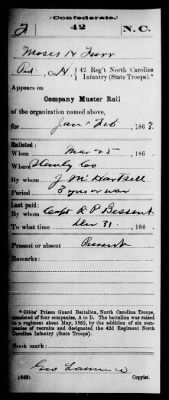 (Confederate.)
2 42 N.C.
Moses H Furr
Pvt, Co. H, 42 Reg't North Carolina
Infantry (State Troops).
Appears on
Company Muster Roll
of the organization named above,
for Jan & Feb, 186
Enlisted:
When Mar 25, 186
Where Stanly Co
By whom J. McHartsell
Period 3 years or war
Last paid:
By whom Capt R P Bessent
To what time Dec 31, 186
Present or absent Present
Remarks:
*Gibbs' Prison Guard Battalion, North Carolina Troops,
consisted of four companies, A to D. The battalion was raised
to a regiment about May, 1862, by the addition of six com-
panies of recruits and designated the 42d Regiment North
Carolina (State Troops).
Book mark:
Geo
(642) Copyist.